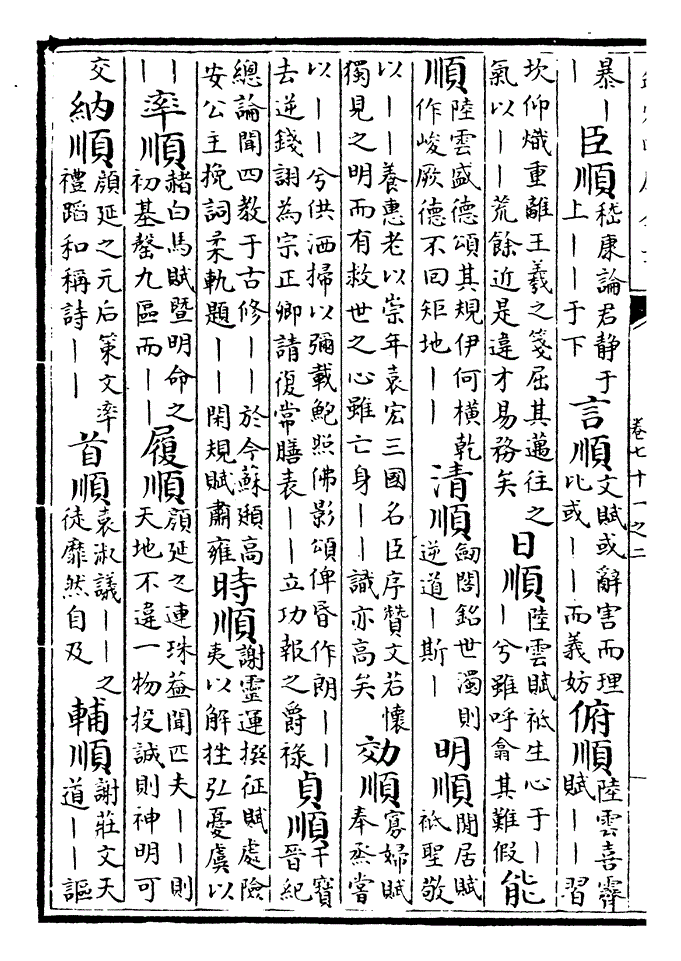 暴丨
丨
臣順
嵇康論君静于
上丨丨于下
言順
文賦或辭害而理
比或丨丨而義妨
俯順
陸雲喜霽
賦丨丨習
坎仰熾重離王羲之箋屈其邁往之
氣以丨丨荒餘近是違才易務矣
日順
陸雲賦祗生心于丨
丨兮雖呼翕其難假
能
順
陸雲盛德頌其規伊何橫乾
作峻厥德不回矩地丨丨
清順
劒閣銘世濁則
逆道丨斯丨
明順
閒居賦
祗聖敬
以丨丨養惠老以崇年袁宏三國名臣序贊文若懷
獨見之明而有救世之心雖亡身丨丨識亦高矣
効順
寡婦賦
奉烝嘗
以丨丨兮供洒掃以彌載鮑照佛影頌俾昏作朗丨丨
去逆錢詡為宗正卿請復常膳表丨丨立功報之爵祿
貞順
干寶
晉紀
總論聞四教于古修丨丨於今蘇頲高
安公主挽詞柔軌題丨丨閑規賦肅雍
時順
謝靈運撰征賦處險
夷以解挫弘憂虞以
丨
丨
率順
赭白馬賦暨明命之
初基罄九區而丨丨
履順
顔延之連珠葢聞匹夫丨丨則
天地不違一物投誠則神明可
交
納順
顔延之元后策文率
禮蹈和稱詩丨丨
首順
袁淑議丨丨之
徒靡然自及
輔順
謝莊文天
道丨丨謳
卷七十一之二